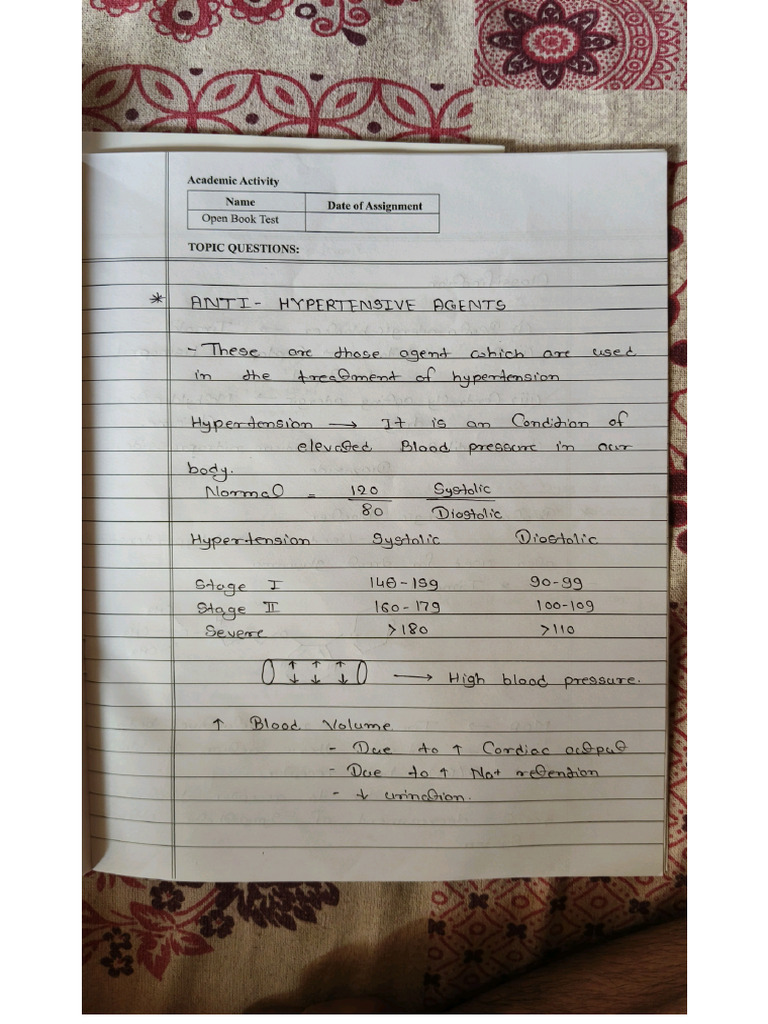 Academic Activity
Name Date of Assignment
Open Book Test
TOPIC QUESTIONS:
* ANTI - HYPERTENSIVE AGENTS
- These are those agent which are used
in the treatment of hypertension
Hypertension → It is an Condition of
elevated Blood pressure in our
body.
Normal = 120/80 Systolic/Diostolic
Hypertension Systolic Diostolic
Stage I 146-159 90-99
Stage II 160-179 100-109
Severe >180 >110
↑ ↑ ↑ → High blood pressure.
↓ ↓ ↓
↑ Blood Volume
- Due to ↑ Cardiac output
- Due to ↑ Na+ retention
- ↓ urination.